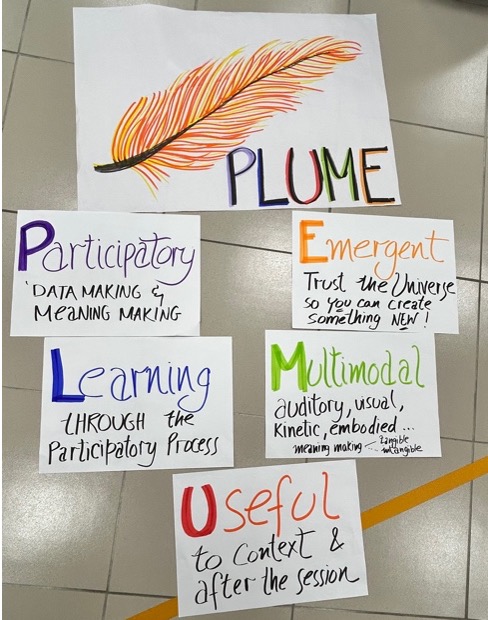 PLUME
Participatory
'DATA MAKING &
MEANING MAKING
Learning
THROUGH the
Participatory Process
Useful
to Context &
after the session
Multimodal
auditory, visual,
Kinetic, embodied...
meaning making ... tangible
intangible
Emergent
Trust the Universe
so you can create
something NEW!